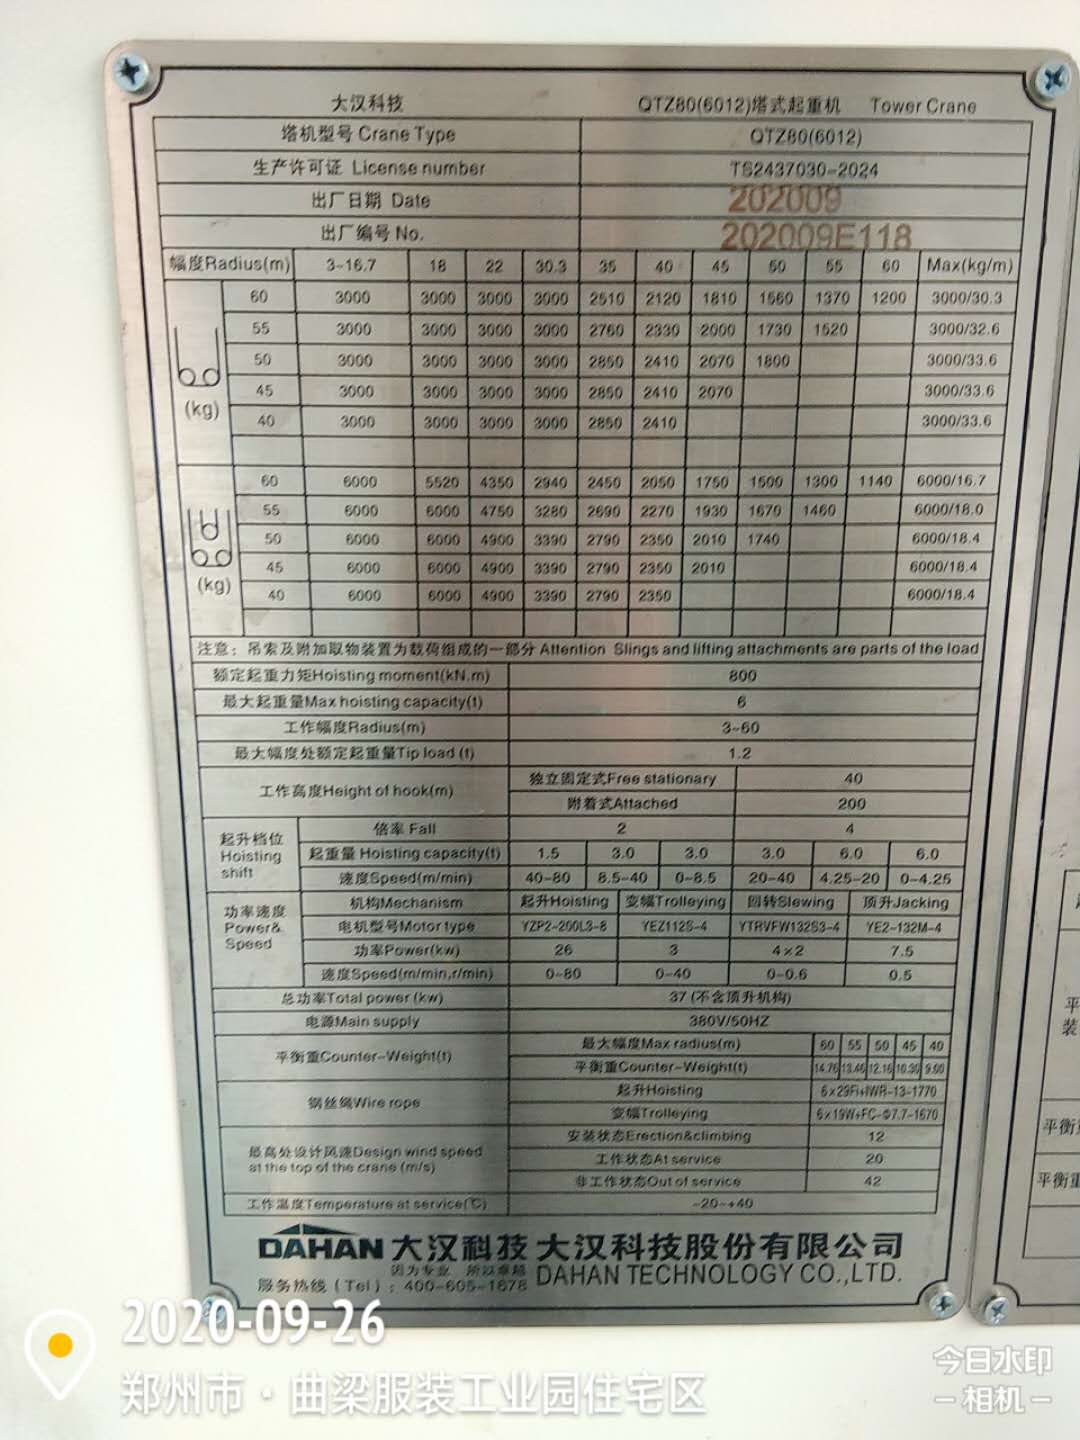 大汉科技 QTZ80(6012)塔式起重机 Tower Crane
塔机型号 Crane Type QTZ80(6012)
生产许可证 License number TS2437030-2024
出厂日期 Date 202009
出厂编号 No. 202009E118
幅度Radius(m) 3-16.7 18 22 30.3 35 40 45 50 55 60 Max(kg/m)
60 3000 3000 3000 3000 2510 2120 1810 1560 1370 1200 3000/30.3
55 3000 3000 3000 3000 2760 2330 2000 1730 1520 3000/32.6
50 3000 3000 3000 3000 2850 2410 2070 1800 3000/33.6
45 3000 3000 3000 3000 2850 2410 2070 3000/33.6
(kg)
40 3000 3000 3000 3000 2850 2410 3000/33.6
60 6000 5520 4350 2940 2450 2050 1750 1500 1300 1140 6000/16.7
55 6000 6000 4750 3280 2690 2270 1930 1670 1460 6000/18.0
50 6000 6000 4900 3390 2790 2350 2010 1740 6000/18.4
45 6000 6000 4900 3390 2790 2350 2010 6000/18.4
(kg)
40 6000 6000 4900 3390 2790 2350 6000/18.4
注意：吊索及附加取物装置为载荷组成的一部分 Attention Slings and lifting attachments are parts of the load
额定起重力矩Hoisting moment(kN.m) 800
最大起重量Max hoisting capacity(t) 6
工作幅度Radius(m) 3-60
最大幅度处额定起重量Tip load (t) 1.2
工作高度Height of hook(m) 独立固定式Free stationary 40
附着式Attached 200
起升档位 Hoisting shift 倍率 Fall 2 4
起重量 Hoisting capacity(t) 1.5 3.0 3.0 3.0 6.0 6.0
速度Speed(m/min) 40-80 8.5-40 0-8.5 20-40 4.25-20 0-4.25
功率速度 Power& Speed 机构Mechanism 起升Hoisting 变幅Trolleying 回转Slewing 顶升Jacking
电机型号Motor type YZP2-200L3-8 YEZ112S-4 YTRVFW132S3-4 YE2-132M-4
功率Power(kw) 26 3 4×2 7.5
速度Speed(m/min,r/min) 0-80 0-40 0-0.6 0.5
总功率Total power (kw) 37 (不含顶升机构)
电源Main supply 380V/50HZ
平衡重Counter-Weight(t) 最大幅度Max radius(m) 60 55 50 45 40
平衡重Counter-Weight(t) 14.76 13.46 12.16 10.30 9.00
钢丝绳Wire rope 起升Hoisting 6×29Fi+IWR-13-1770
变幅Trolleying 6×19W+FC-Φ7.7-1670
最高处设计风速Design wind speed at the top of the crane (m/s) 安装状态Erection&climbing 12
工作状态At service 20
非工作状态Out of service 42
工作温度Temperature at service(℃) -20~+40
DAHAN 大汉科技 大汉科技股份有限公司
因为专业 所以卓越
服务热线（Tel）: 400-605-1678 DAHAN TECHNOLOGY CO.,LTD.
平
装
平衡重
平衡重
2020-09-26
郑州市·曲梁服装工业园住宅区
今日水印
-相机-